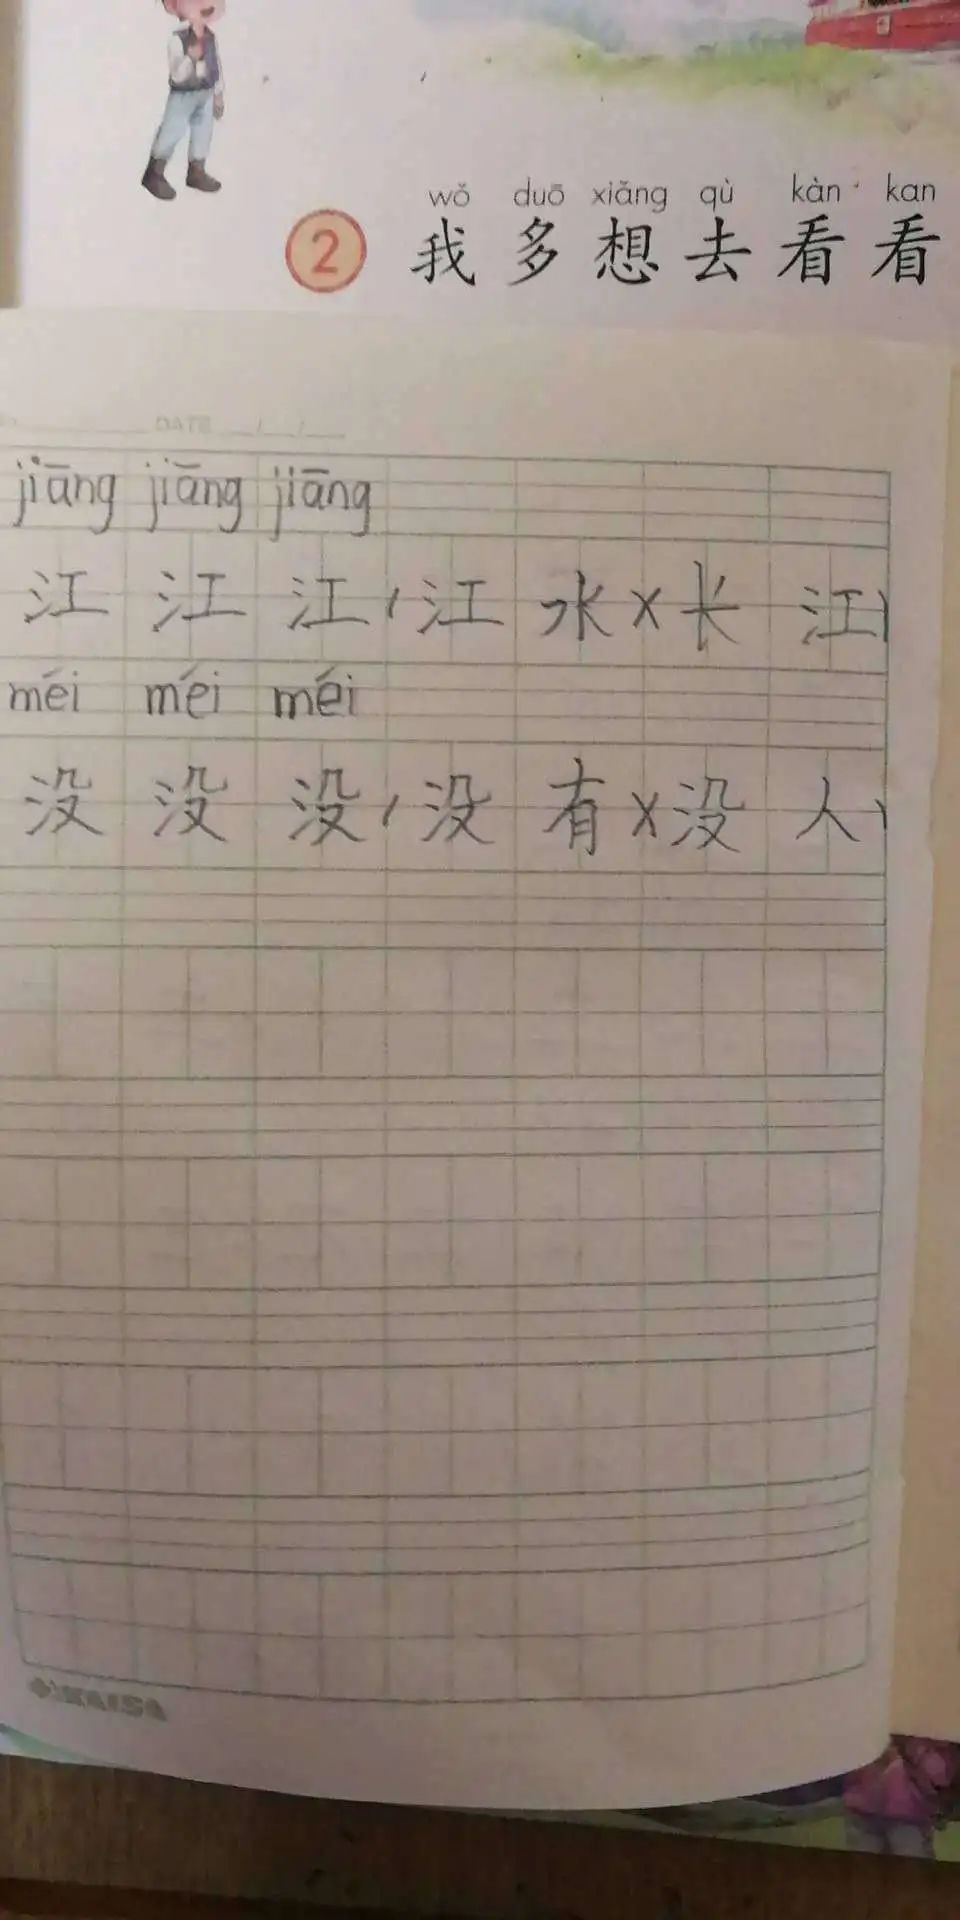 wǒ duō xiǎng qù kàn kan
2 我多想去看看
DATE
jiāng jiāng jiāng
江 江 江(江 水)(长 江)
méi méi méi
没 没 没(没 有)(没 人)
KAISA